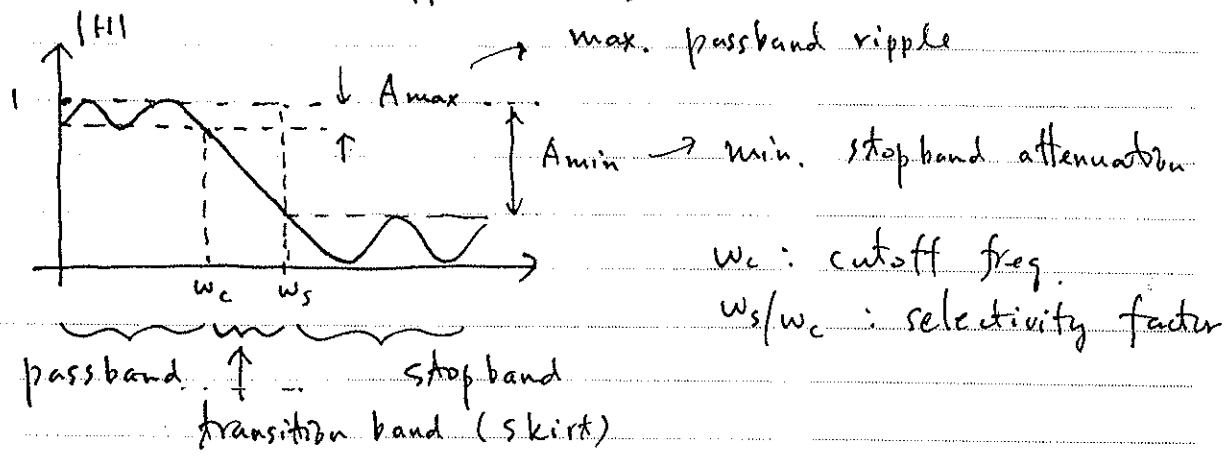 |H|
max. passband ripple
1
Amax
Amin → min. stopband attenuation
wc ws
wc : cutoff freq.
ws/wc : selectivity factor
passband stopband
transition band (skirt)